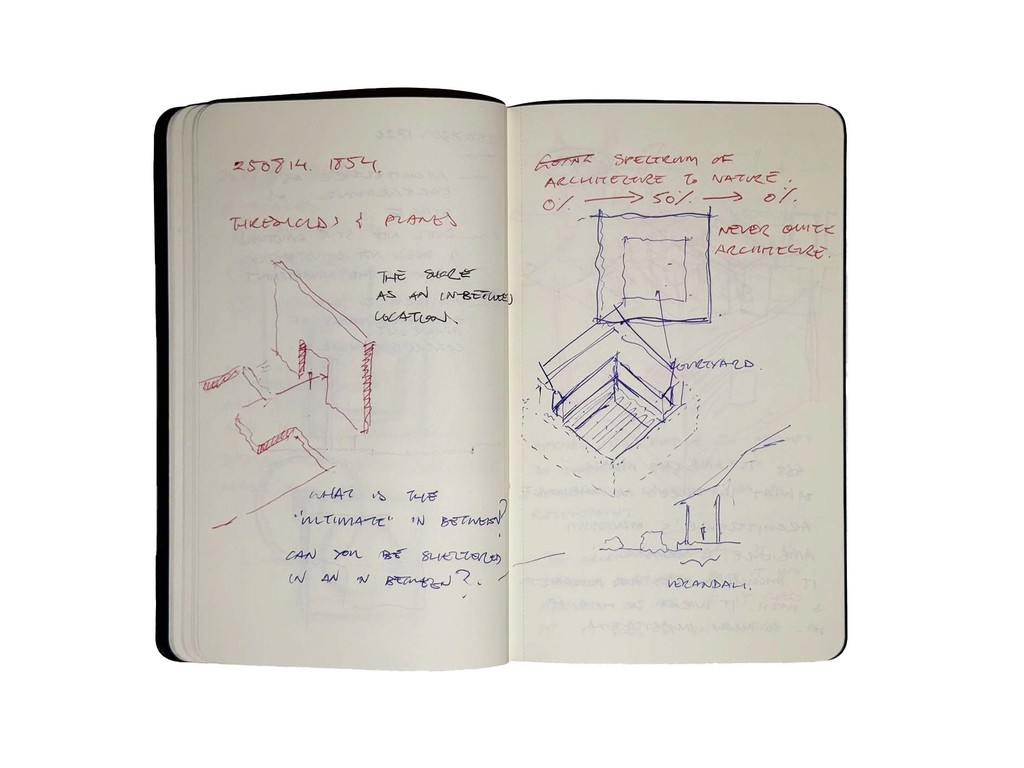 250814. 1854.
THRESHOLDS & PLANES
THE SHORE
AS AN IN-BETWEEN
LOCATION.
WHAT IS THE
"ULTIMATE" IN BETWEEN?
CAN YOU BE SHELTERED
IN AN IN BETWEEN?.
SPECTRUM OF
ARCHITECTURE TO NATURE.
0% → 50% → 0%.
NEVER QUITE
ARCHITECTURE.
COURTYARD.
VERANDAH.